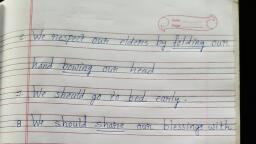 We respect our elders by folding our
hand bowing our head
We should go to bed early.
8 We should share our blessings with